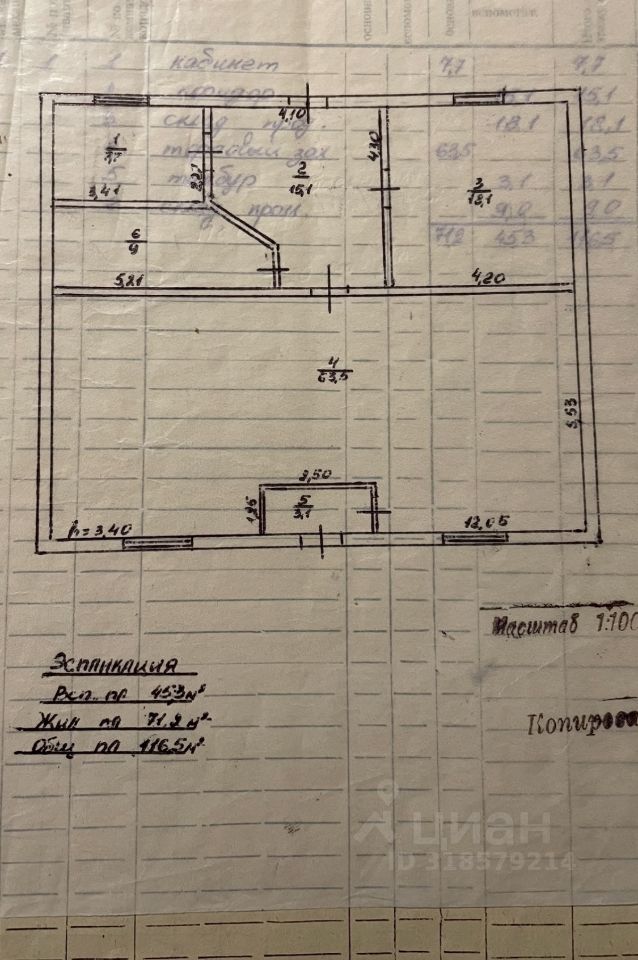 1 1 кабинет 7,7 7,7
коридор 15,1 15,1
склад прод. 18,1 18,1
торговый зал 63,5 63,5
5 тамбур 3,1 3,1
пром. 9,0 9,0
71,2 45,3 116,5
4,10
1
7,7
3,41
2,27
2
15,1
4,30
3
18,1
6
9
5,21
4,20
4
63,5
5,53
2,50
1,25
5
3,1
h=3,40
12,05
Масштаб 1:100
Эспликация
Всп. пл 45,3 м²
Жил пл 71,2 м²
Общ пл 116,5 м²
Копировал
циан
ID 318579214